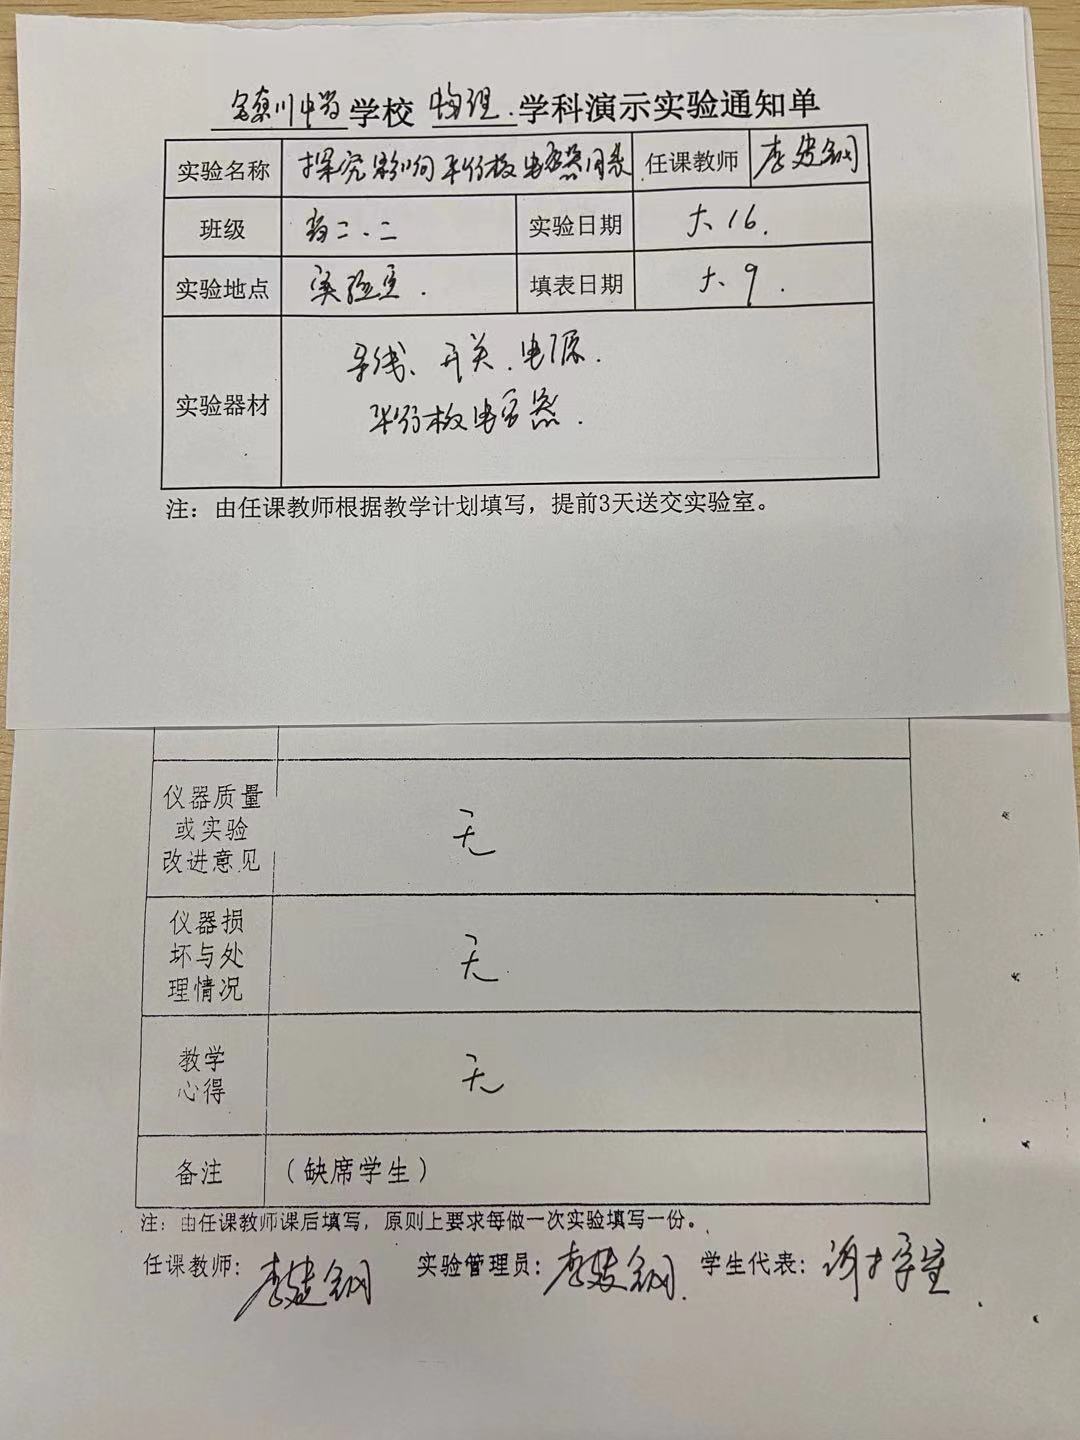 川中学 学校 物理 . 学科演示实验通知单
实验名称 探究影响平行板电容器 任课教师 李建钢
班级 高二.二 实验日期 六.16.
实验地点 实验室. 填表日期 六.9.
导线、开关、电源.
实验器材
平行板电容器.
注：由任课教师根据教学计划填写，提前3天送交实验室。
仪器质量
或实验 无
改进意见
仪器损
坏与处 无
理情况
教学 无
心得
备注 （缺席学生）
注：由任课教师课后填写，原则上要求每做一次实验填写一份。
任课教师：李建钢 实验管理员：李建钢. 学生代表：